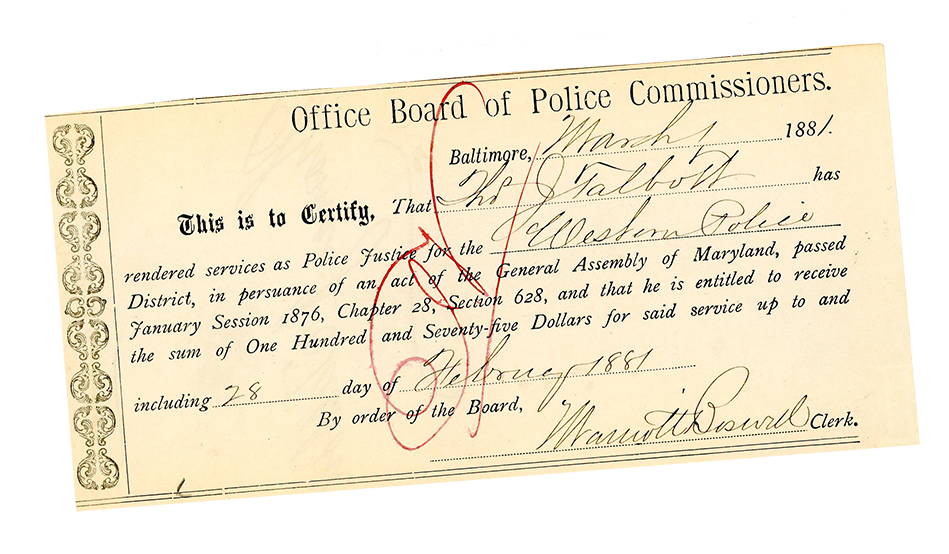 Office Board of Police Commissioners.
Baltimore, March 1, 1881.
This is to Certify, That Thos J Talbott has
rendered services as Police Justice for the Western Police
District, in persuance of an act of the General Assembly of Maryland, passed
January Session 1876, Chapter 28, Section 628, and that he is entitled to receive
the sum of One Hundred and Seventy-five Dollars for said service up to and
including 28 day of February 1881
By order of the Board,
Marriott Boswell Clerk.